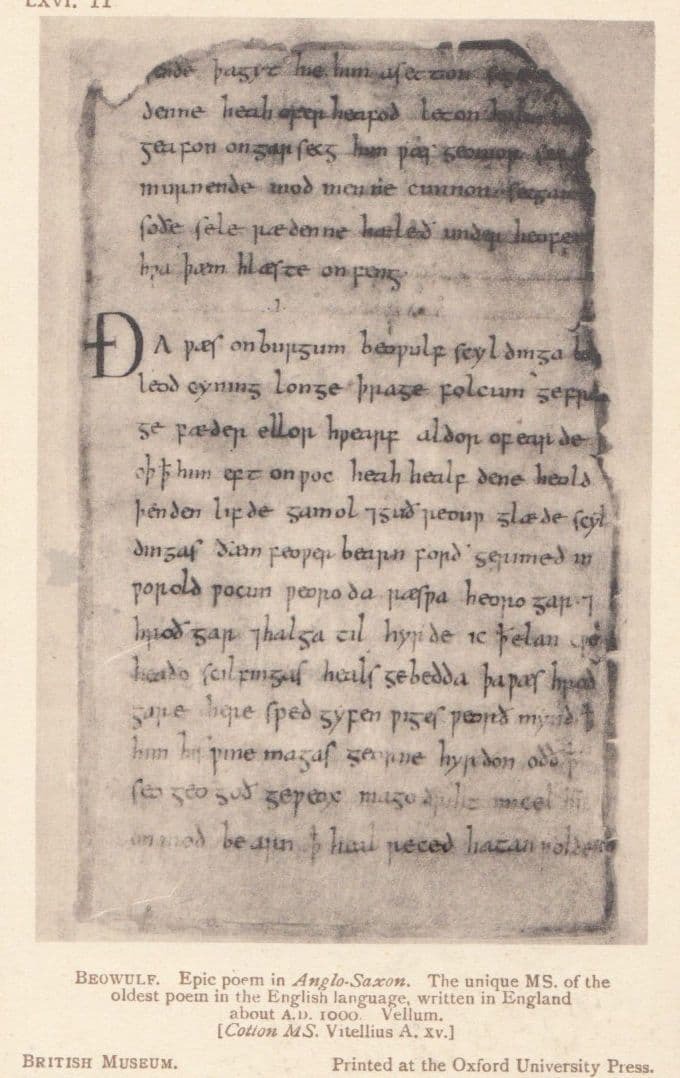 LXVI. 11
ende þagyt hie him asetton
denne heah ofer heafod leton
geafon ongarsecg him ƿæs geomor
murnende mod men ne cunnon secgan
soðe sele rædenne hæleð under heofen
hƿa þæm hlæste onfeng
ÐA ƿæs onburgum beoƿulf scyldinga
leod cyning longe þrage folcum gefræ
ge fæder ellor hƿearf aldor ofearde
oþꝥ him eft onƿoc heah healfdene heold
þenden lifde gamol ⁊ guðreouƿ glæde scyl
dingas ðæm feoƿer bearn forð gerimed in
ƿorold ƿocun ƿeoroda ræsƿa heorogar ⁊
hroðgar ⁊ halga til hyrde ic ꝥ elan
heaðo scilfingas heals gebedda þaƿæs hroð
gare here sped gyfen ƿiges ƿeorð mynd ꝥ
him his ƿine magas georne hyrdon oððꝥ
seo geogoð geƿeox mago driht micel
onmod bearn ꝥ heal reced hatan ƿolde
BEOWULF. Epic poem in Anglo-Saxon. The unique MS. of the
oldest poem in the English language, written in England
about A.D. 1000. Vellum.
[Cotton MS. Vitellius A. XV.]
BRITISH MUSEUM. Printed at the Oxford University Press.